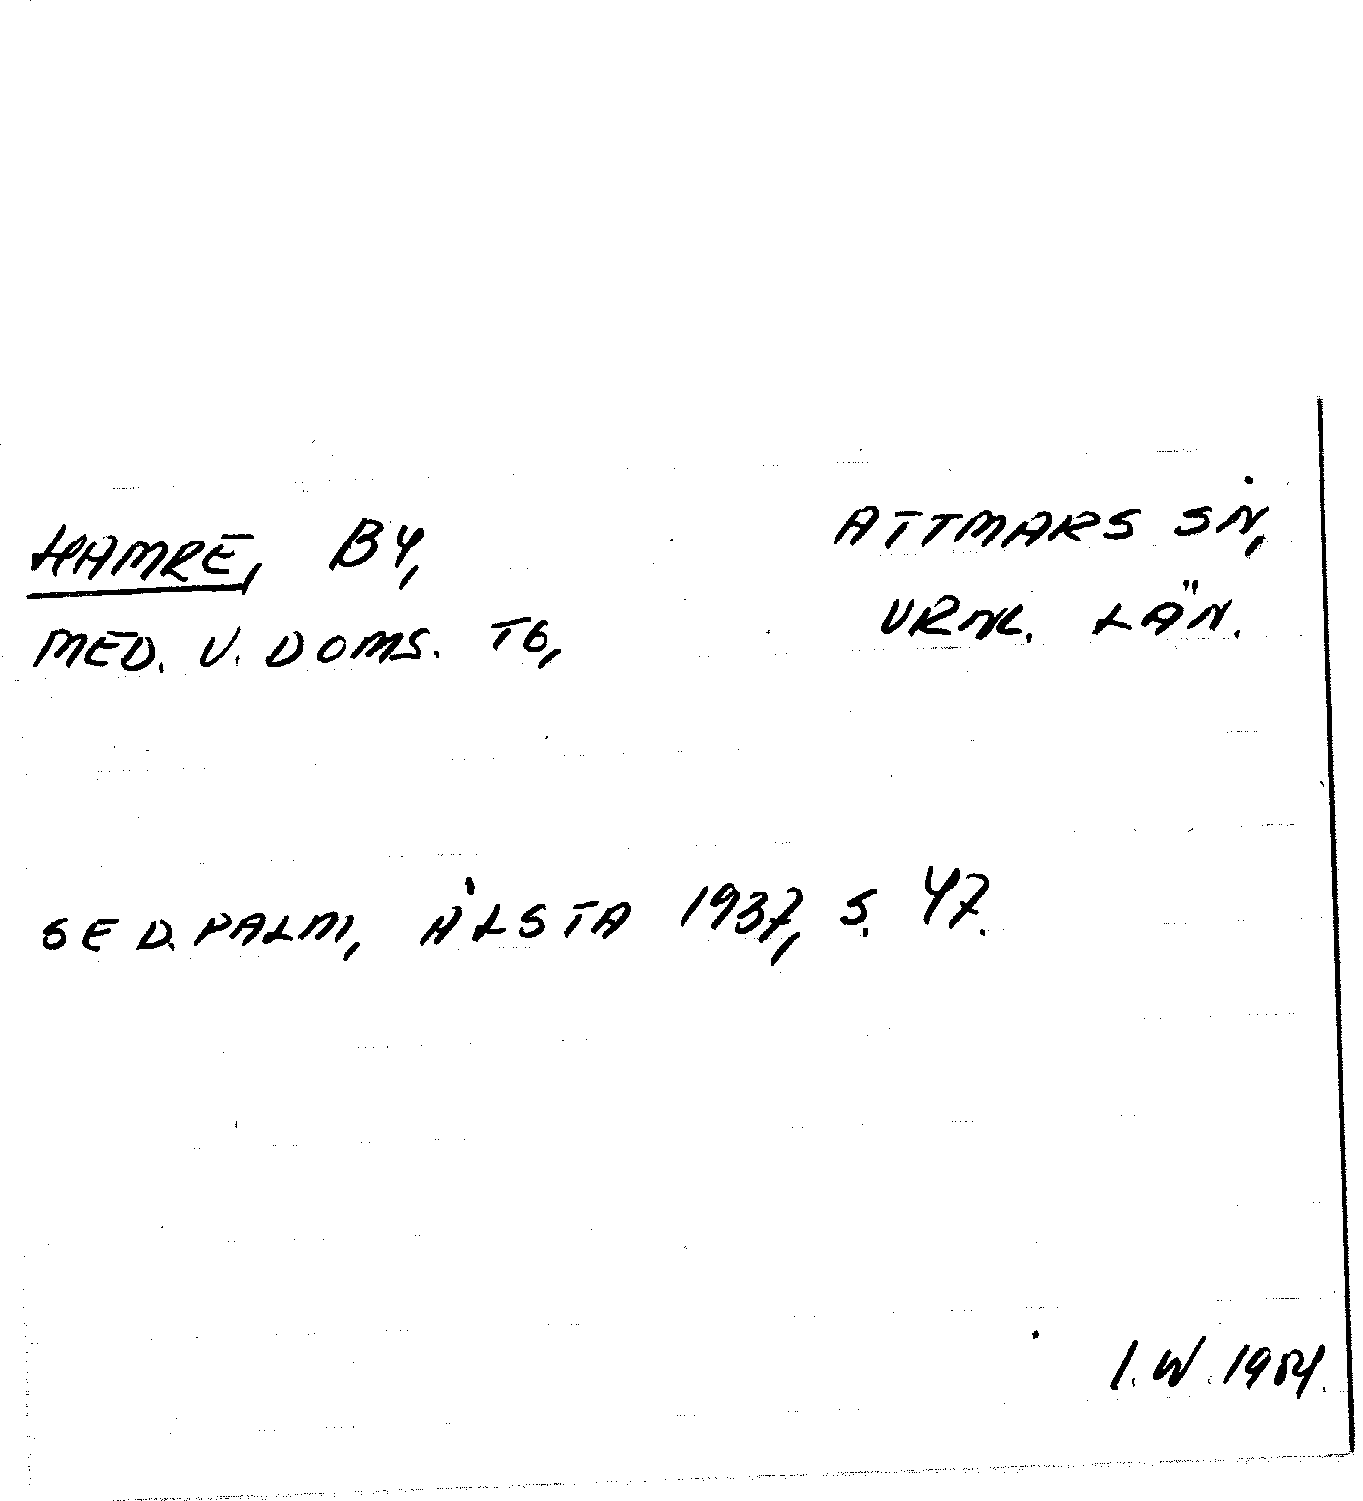 HAMRE, BY,
ATTMARS SN,
MED. V. DOMS. TG,
VRNL. LÄN.
SE D. PALM, ÅLSTA 1937, S. 47.
I. W. 1954.